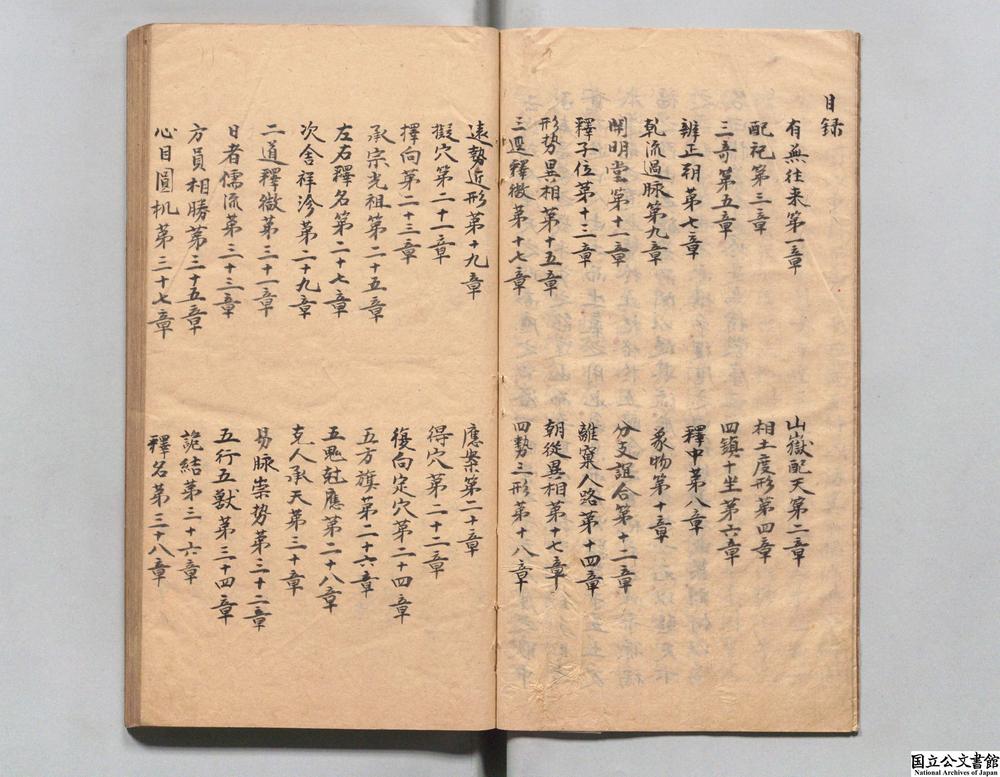 目録
有無往来第一章
山嶽配天第二章
配祀第三章
相土度形第四章
三奇第五章
四鎮十坐第六章
辨正朝第七章
釋中第八章
乹流過脉第九章
象物第十章
開明堂第十一章
分支誼合第十二章
釋子位第十三章
離窠八路第十四章
形勢異相第十五章
朝從異相第十七章
三逕釋微第十七章
四勢三形第十八章
遠勢近形第十九章
應案第二十章
擬穴第二十一章
得穴第二十二章
擇向第二十三章
復向定穴第二十四章
承宗光祖第二十五章
五方旗第二十六章
左右釋名第二十七章
五鬼尅應第二十八章
次舍祥沴第二十九章
克人承天第三十章
二道釋微第三十一章
易脉崇勢第三十二章
日者儒流第三十三章
五行五獸第三十四章
方員相勝第三十五章
詭結第三十六章
心目圓机第三十七章
釋名第三十八章
国立公文書館
National Archives of Japan